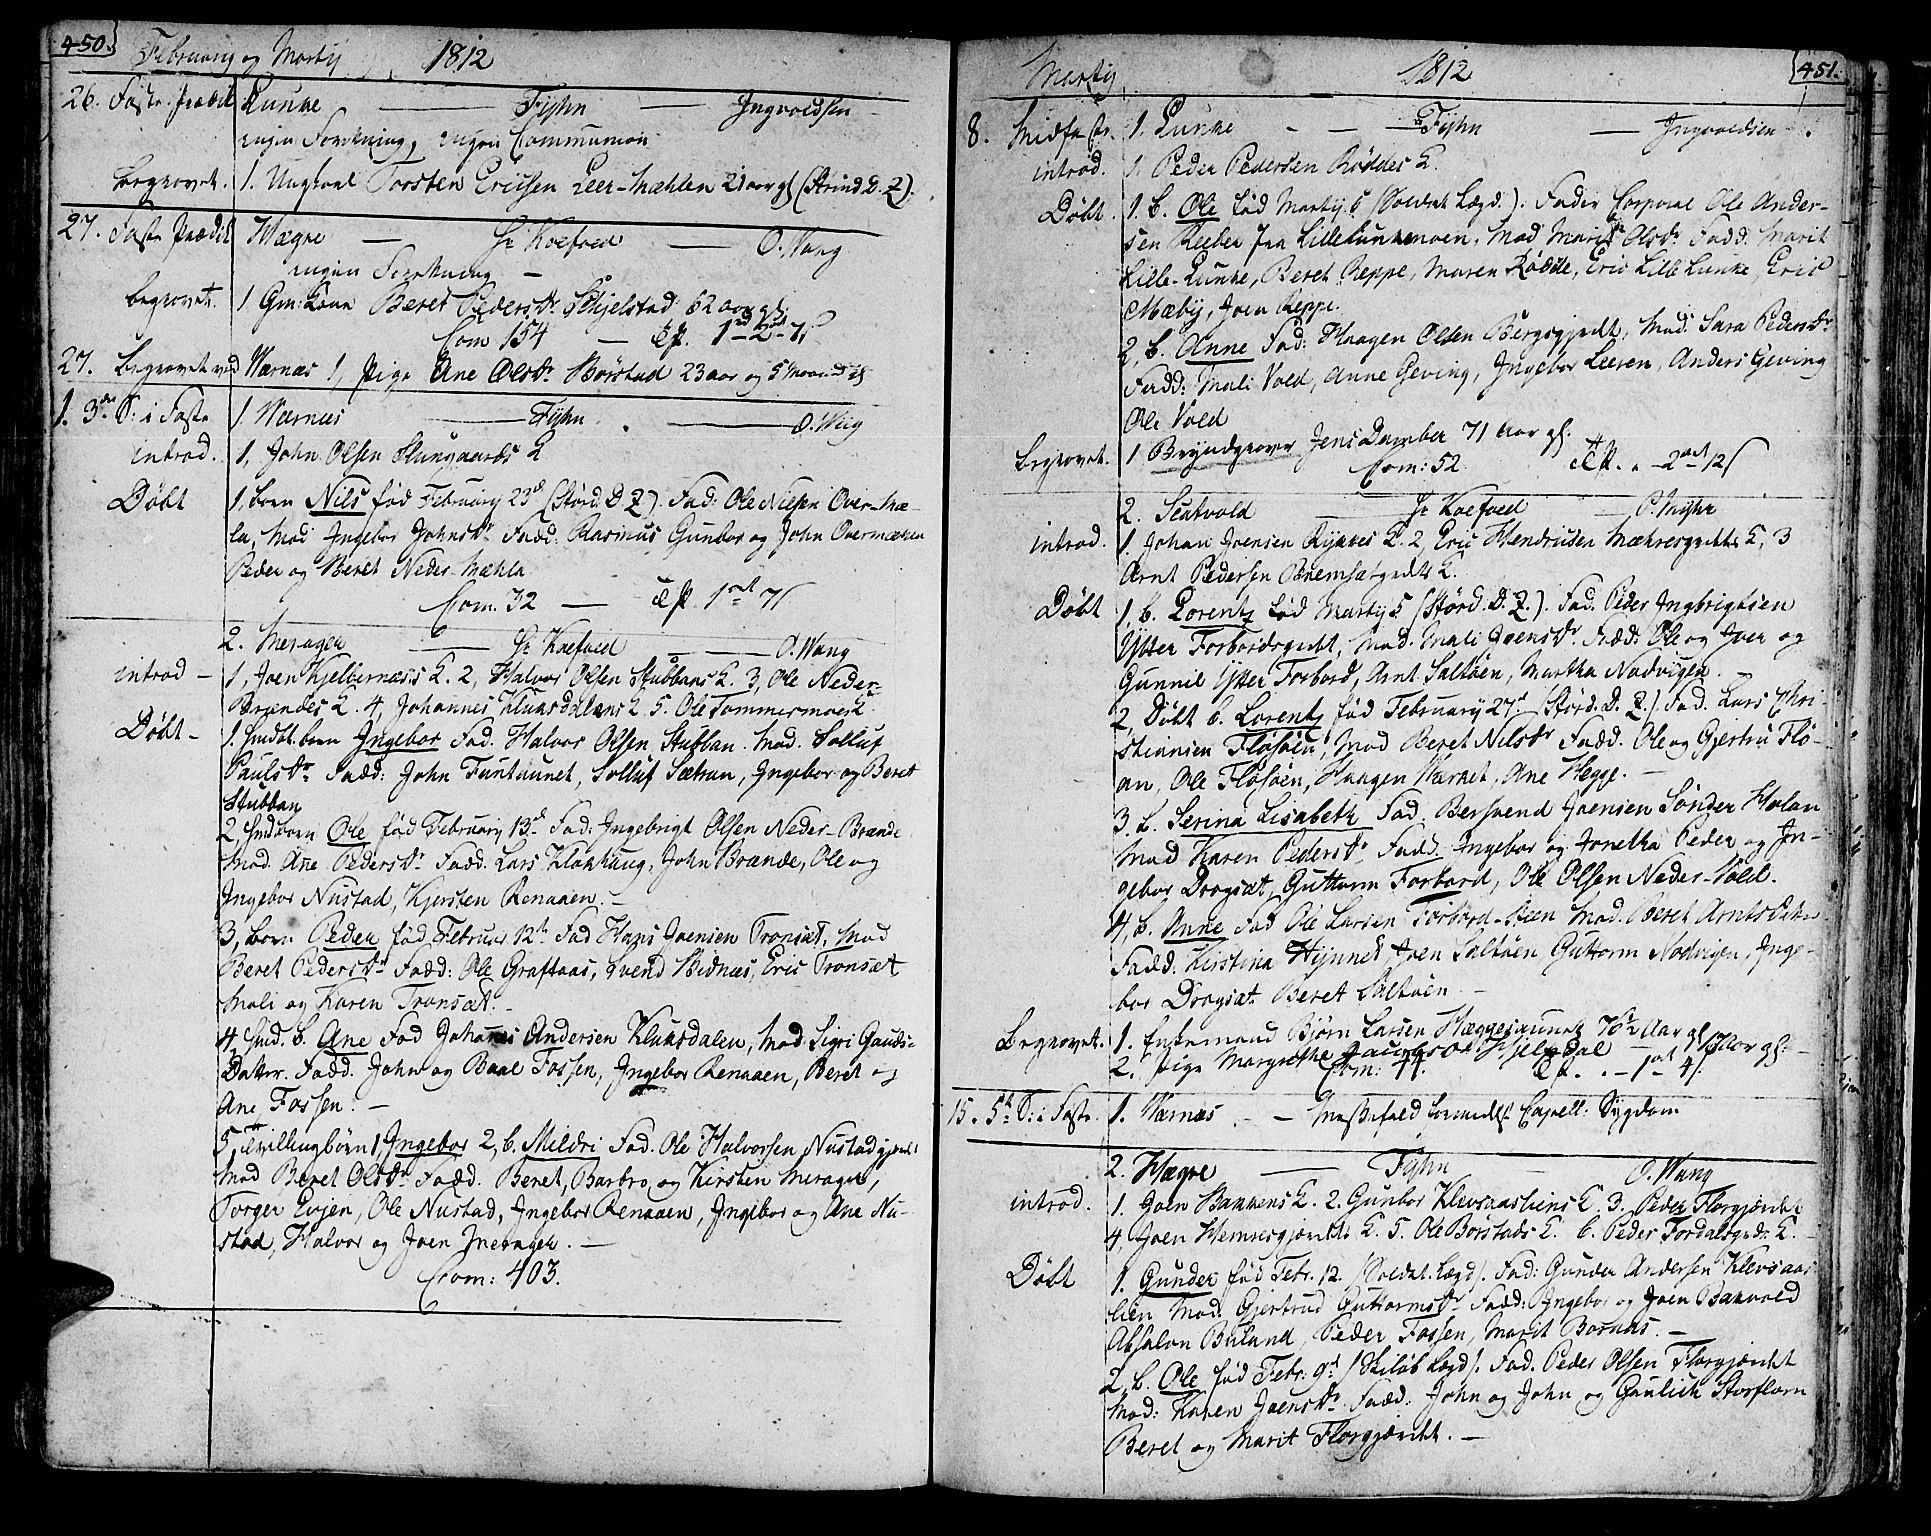 450.
February og Martij 1812
26. Faste Prædik Lunke — Fyhn — Ingvoldsen
ingen Forretning, ingen Communion
begravet. 1. Ungkarl Torsten Ericsen Leer-Mæhlen 21 aar gl (Strind. D. Z).
27. Faste Prædik Hægre — Hr Koefoed — O. Wang
ingen Forretning —
begravet. 1 Gm: kone Beret Peders dr Skjelstad 52 aar gl.
Com 154 — 1 2 7
27. begravet ved Wærnæs 1, Pige Ane Olsdr Borstad 23 aar og 5 Maaneder
1. 3de S: i Faste 1. Wærnæs — Fyhn — O. Wiig
introd. 1, John Olsen Slungaards K
Døbt 1, born Nils fød February 23d (Størd. D. Z). Fad: Ole Nilsen Over-Mæ-
la, Mod Ingebor Johnsdr Fadd: Rasmus Gunbor og John Overmæhlen
Peder og Beret Neder Mæhla
Com. 32 — 1 7
2. Meragen — Hr Koefoed — O. Wang
introd — 1, Joen Kjelbernæsis K. 2, Halvor Olsen Stubbans K. 3, Ole Neder-
Brændes K. 4, Johannes Kluksdalens K 5. Ole Tommermoes K
Døbt — 1. born Ingebor Fad. Halvor Olsen Stubban. Mod. Solluf
Paulsdr Fadd: John Tuntaunet, Solluf Sætran, Ingebor og Beret
Stubban
2 born Ole fød February 13d Fad: Ingebrigt Olsen Neder-Brænde
Mod. Ane Pedersdr Fadd. Lars Klokhaug, John Brænde, Ole og
Ingebor Nustad, Kjersten Renaaen. —
3, born Peder fød Februar 12te Fad Hans Joensen Tronsæt, Mod
Beret Pedersdr Fadd: Ole Graftaas, Svend Bidnæs, Eric Tronsæt
Mali og Karen Tronsæt. —
4, b. Ane Fad Johannes Andersen Kluksdalen, Mod Sigri Gauds-
Datter. Fadd. John og Baal Fossen, Ingebor Renaaen, Beret og
Ane Fossen. —
5, Tvillingbørn 1, Ingebor 2, b. Mildri Fad. Ole Halvorsen Nustadgjerdt
Mod Beret Olsdr Fadd. Beret, Barbro og Kirsten Meragen,
Torger Evjen, Ole Nustad, Ingebor Renaaen, Ingebor og Ane Nu-
stad, Halvor og Joen Meragen. —
Com: 403.
Martij 1812 451.
8. Midfaste 1. Lunke — Fyhn — Ingvoldsen
introd. 1. Peder Pedersen Røddes K.
Døbt. 1. b. Ole fød Martij 5 (Soldat Lægd.). Fader Corporal Ole Ander-
sen Reeber fra Lillelunkemoen, Mod Marit Olsdr. Fadd: Marit
Lille-Lunke, Beret Reppe, Maren Rødde, Eric Lille Lunke, Eric
Mæby, Joen Reppe.
2, b. Anne Fad: Haagen Olsen Bergsgjerdt, Mod: Sara Pedersdr
Fadd: Mali Vold, Anne Geving, Ingebor Leeren, Anders Geving
Ole Vold
begravet. 1 Bryndgraver Jens Damber 71 Aar gl.
Com: 52. 2 12
2. Skatvold — Hr Koefoed — O. Myhr
introd. 1. Johan Joensen Rykkes K. 2, Eric Hendricsen Mæhresgjerdts K, 3
Arnt Pedersen Bremsætgjerdts K.
Døbt 1, b. Lorentz fød Martij 5 (Størd. D. Z.). Fad. Peder Ingbrigtsen
Ytter Forbordsgjerdt, Mod. Mali Joensdr Fadd: Ole og Joen og
Gunnil Ytter Forbord, Arnt Saltøen, Martha Nødvigen. —
2, Døbt b. Lorentz fød February 27d (Størd. D. Z.). Fad. Lars Chri-
stiansen Fløsøen, Mod Beret Nilsdr Fadd. Ole og Gjertru Flø-
an, Ole Fløsøen, Haagen Værket, Ane Hegge. —
3. b. Serina Lisabeth Fad. Bersvend Joensen Sønder Holan
Mod Karen Pedersdr Fadd. Ingebor og Jonetha Peder og In-
gebor Dragsæt, Guttorm Forbord, Ole Olsen Neder-Vold.
4, b. Anne Fad Ole Larsen Forbord-Keen Mod. Beret Arnts Datter
Fadd. Kirstina Hynnet, Joen Saltøen Guttorm Nødvigen, Inge-
bor Dragsæt Beret Saltøen —
begravet. 1. Enkemand Bjørn Larsen Hæggesaunet 76 1/2 Aar gl.
2. Pige Margrethe Jacobsdr Hjelsdal Aar gl. —
Com: 44. 1 4
15. 5te S: i Faste. 1. Wærnæs — Messefald formedelst Capell: Sygdom
2. Hægre — Fyhn — O. Wang
introd. 1. Joen Bakkens K. 2. Gunbor Klevsaasliens K. 3. Peder Florgjerdts
4, Joen Hemnesgjerdts K. 5. Ole Borstads K. 6. Peder Fordalsgjdts K. —
Døbt 1. Gunder fød Febr. 12. (Soldat. Lægd). Fad: Gunder Andersen Klevsaas
lien Mod. Gjertrud Guttormsdr Fadd: Ingebor og Joen Bakvold
Absalon Buland, Peder Fossen, Marit Bornæs. —
2. b. Ole fød Febr: 9d (Skiløb Lægd). Fad. Peder Olsen Florgjerdt
Mod: Karen Joensdr Fadd: John og John og Gaulich Storfloren
Beret og Marit Florgjerdt. —